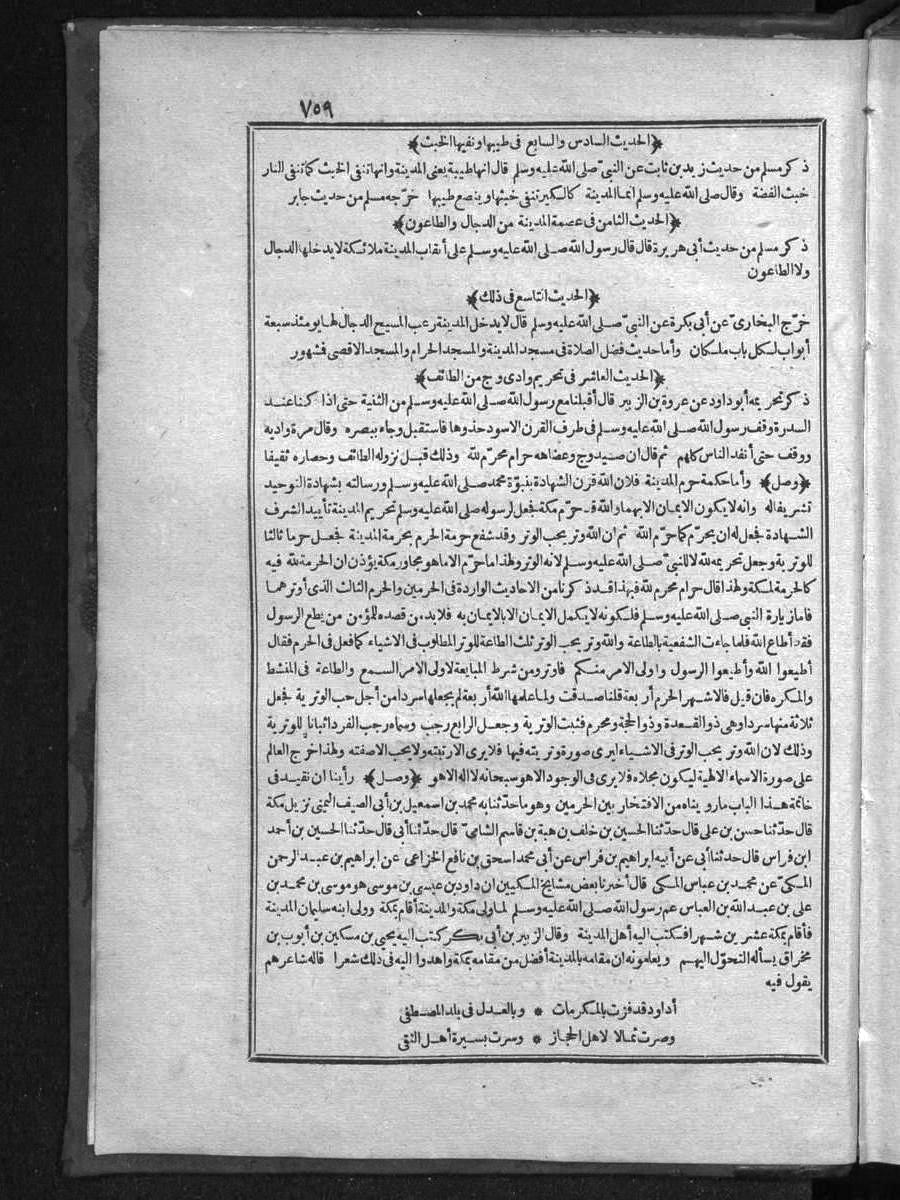 ٧٥٩
﴿الحديث السادس والسابع فى طيبها ونفيها الخبث﴾
ذكر مسلم من حديث زيد بن ثابت عن النبىّ صلى الله عليه وسلم قال انها طيبة يعنى المدينة وانها تنفى الخبث كما تنفى النار
خبث الفضة وقال صلى الله عليه وسلم انما المدينة كالكير تنفى خبثها وينصع طيبها خرّجه مسلم من حديث جابر
﴿الحديث الثامن فى عصمة المدينة من الدجال والطاعون﴾
ذكر مسلم من حديث أبى هريرة قال قال رسول الله صلى الله عليه وسلم على أنقاب المدينة ملائكة لا يدخلها الدجال
ولا الطاعون
﴿الحديث التاسع فى ذلك﴾
خرّج البخارىّ عن أبى بكرة عن النبىّ صلى الله عليه وسلم قال لا يدخل المدينة رعب المسيح الدجال لها يومئذ سبعة
أبواب لكل باب ملكان وأما حديث فضل الصلاة فى مسجد المدينة والمسجد الحرام والمسجد الاقصى فشهور
﴿الحديث العاشر فى تحريم وادى وج من الطائف﴾
ذكر تحريمه أبو داود عن عروة بن الزبير قال أقبلنا مع رسول الله صلى الله عليه وسلم من الثنية حتى اذا كنا عند
السدرة وقف رسول الله صلى الله عليه وسلم فى طرف القرن الاسود حذوها فاستقبل وجاء ببصره وقال مرة واديه
ووقف حتى أنفد الناس كلهم ثم قال ان صيد وج وعضاهه حرام محرّم لله وذلك قبل نزوله الطائف وحصاره ثقيفا
﴿وصل﴾ وأما حكمة حرم المدينة فلان الله قرن الشهادة بنبوّة محمد صلى الله عليه وسلم ورسالته بشهادة التوحيد
تشريفا له وانه لا يكون الايمان الا بهما والله قد حرّم مكة فجعل لرسوله صلى الله عليه وسلم تحريم المدينة تأييد الشرف
الشهادة فجعل له ان يحرّم كما حرّم الله ثم ان الله وتر يحب الوتر وقد شفع حرمة الحرم بحرمة المدينة فجعل حرما ثالثا
للوترية وجعل تحريمه لله لا للنبىّ صلى الله عليه وسلم لانه الوتر ولهذا ما حرّم الا ما هو مجاور مكة يؤذن ان الحرمة لله فيه
كالحرمة لمكة ولهذا قال حرام محرم لله فبهذا قد ذكرنا من الاحاديث الواردة فى الحرمين والحرم الثالث الذى أوترهما
فاما زيارة النبى صلى الله عليه وسلم فلكونه لا يكمل الايمان الا بالايمان به فلا بد من قصده للمؤمن من يطع الرسول
فقد أطاع الله فلما جاءت الشفعية بالطاعة والله وتر يحب الوتر ثلث الطاعة للوتر المطلوب فى الاشياء كما فعل فى الحرم فقال
أطيعوا الله وأطيعوا الرسول وأولى الامر منكم فاوتر ومن شرط المبايعة لاولى الامر السمع والطاعة فى المنشط
والمكره فان قيل فالاشهر الحرم أربعة قلنا صدقت ولما علمها الله أربعة لم يجعلها سردا من أجل حب الوترية فجعل
ثلاثة منها سردا وهى ذو القعدة وذو الحجة ومحرم فثبت الوترية وجعل الرابع رجب وسماه رجب الفرد اثباتا للوترية
وذلك لان الله وتر يحب الوتر فى الاشياء ليرى صورة وتريته فيها فلا يرى الا رتبته ولا يحب الا صفته ولهذا خرج العالم
على صورة الاسماء الالهية ليكون مجلاه فلا يرى فى الوجود الا هو سبحانه لا اله الا هو ﴿وصل﴾ رأينا ان نقيد فى
خاتمة هذا الباب ما رويناه من الافتخار بين الحرمين وهو ما حدّثنا به محمد بن اسمعيل بن أبى الصيف اليمنى نزيل مكة
قال حدّثنا حسن بن على قال حدّثنا الحسين بن خلف بن هبة بن قاسم الشامىّ قال حدّثنا أبى قال حدّثنا الحسين بن أحمد
ابن فراس قال حدثنا أبى عن أبيه ابراهيم بن فراس عن أبى محمد اسحق بن نافع الخزاعى عن ابراهيم بن عبد الرحمن
المكىّ عن محمد بن عباس المكى قال أخبرنا بعض مشايخ المكيين ان داود بن عيسى بن موسى هو موسى بن محمد بن
على بن عبد الله بن العباس عم رسول الله صلى الله عليه وسلم لما ولى مكة والمدينة أقام بمكة وولى ابنه سليمان المدينة
فأقام بمكة عشرين شهرا فكتب اليه أهل المدينة وقال الزبير بن أبى بكر كتب اليه يحيى بن مسكين بن أيوب بن
مخراق يسأله التحوّل اليهم ويعلمونه ان مقامه بالمدينة أفضل من مقامه بمكة واهدوا اليه فى ذلك شعرا قاله شاعرهم
يقول فيه
أداود قد فزت بالمكرمات * وبالعدل فى بلد المصطفى
وصرت ثمالا لاهل الحجاز * وسرت بسيرة أهل التقى